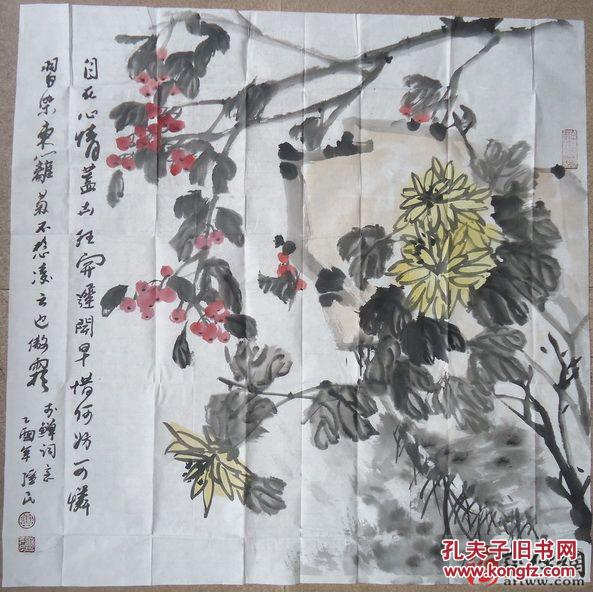 自在心情蓋世狂開遲開早惜何妨可憐
習染東籬菊不凌云也傲霜
詞意
乙酉年
孔夫子旧书网
www.kongfz.com